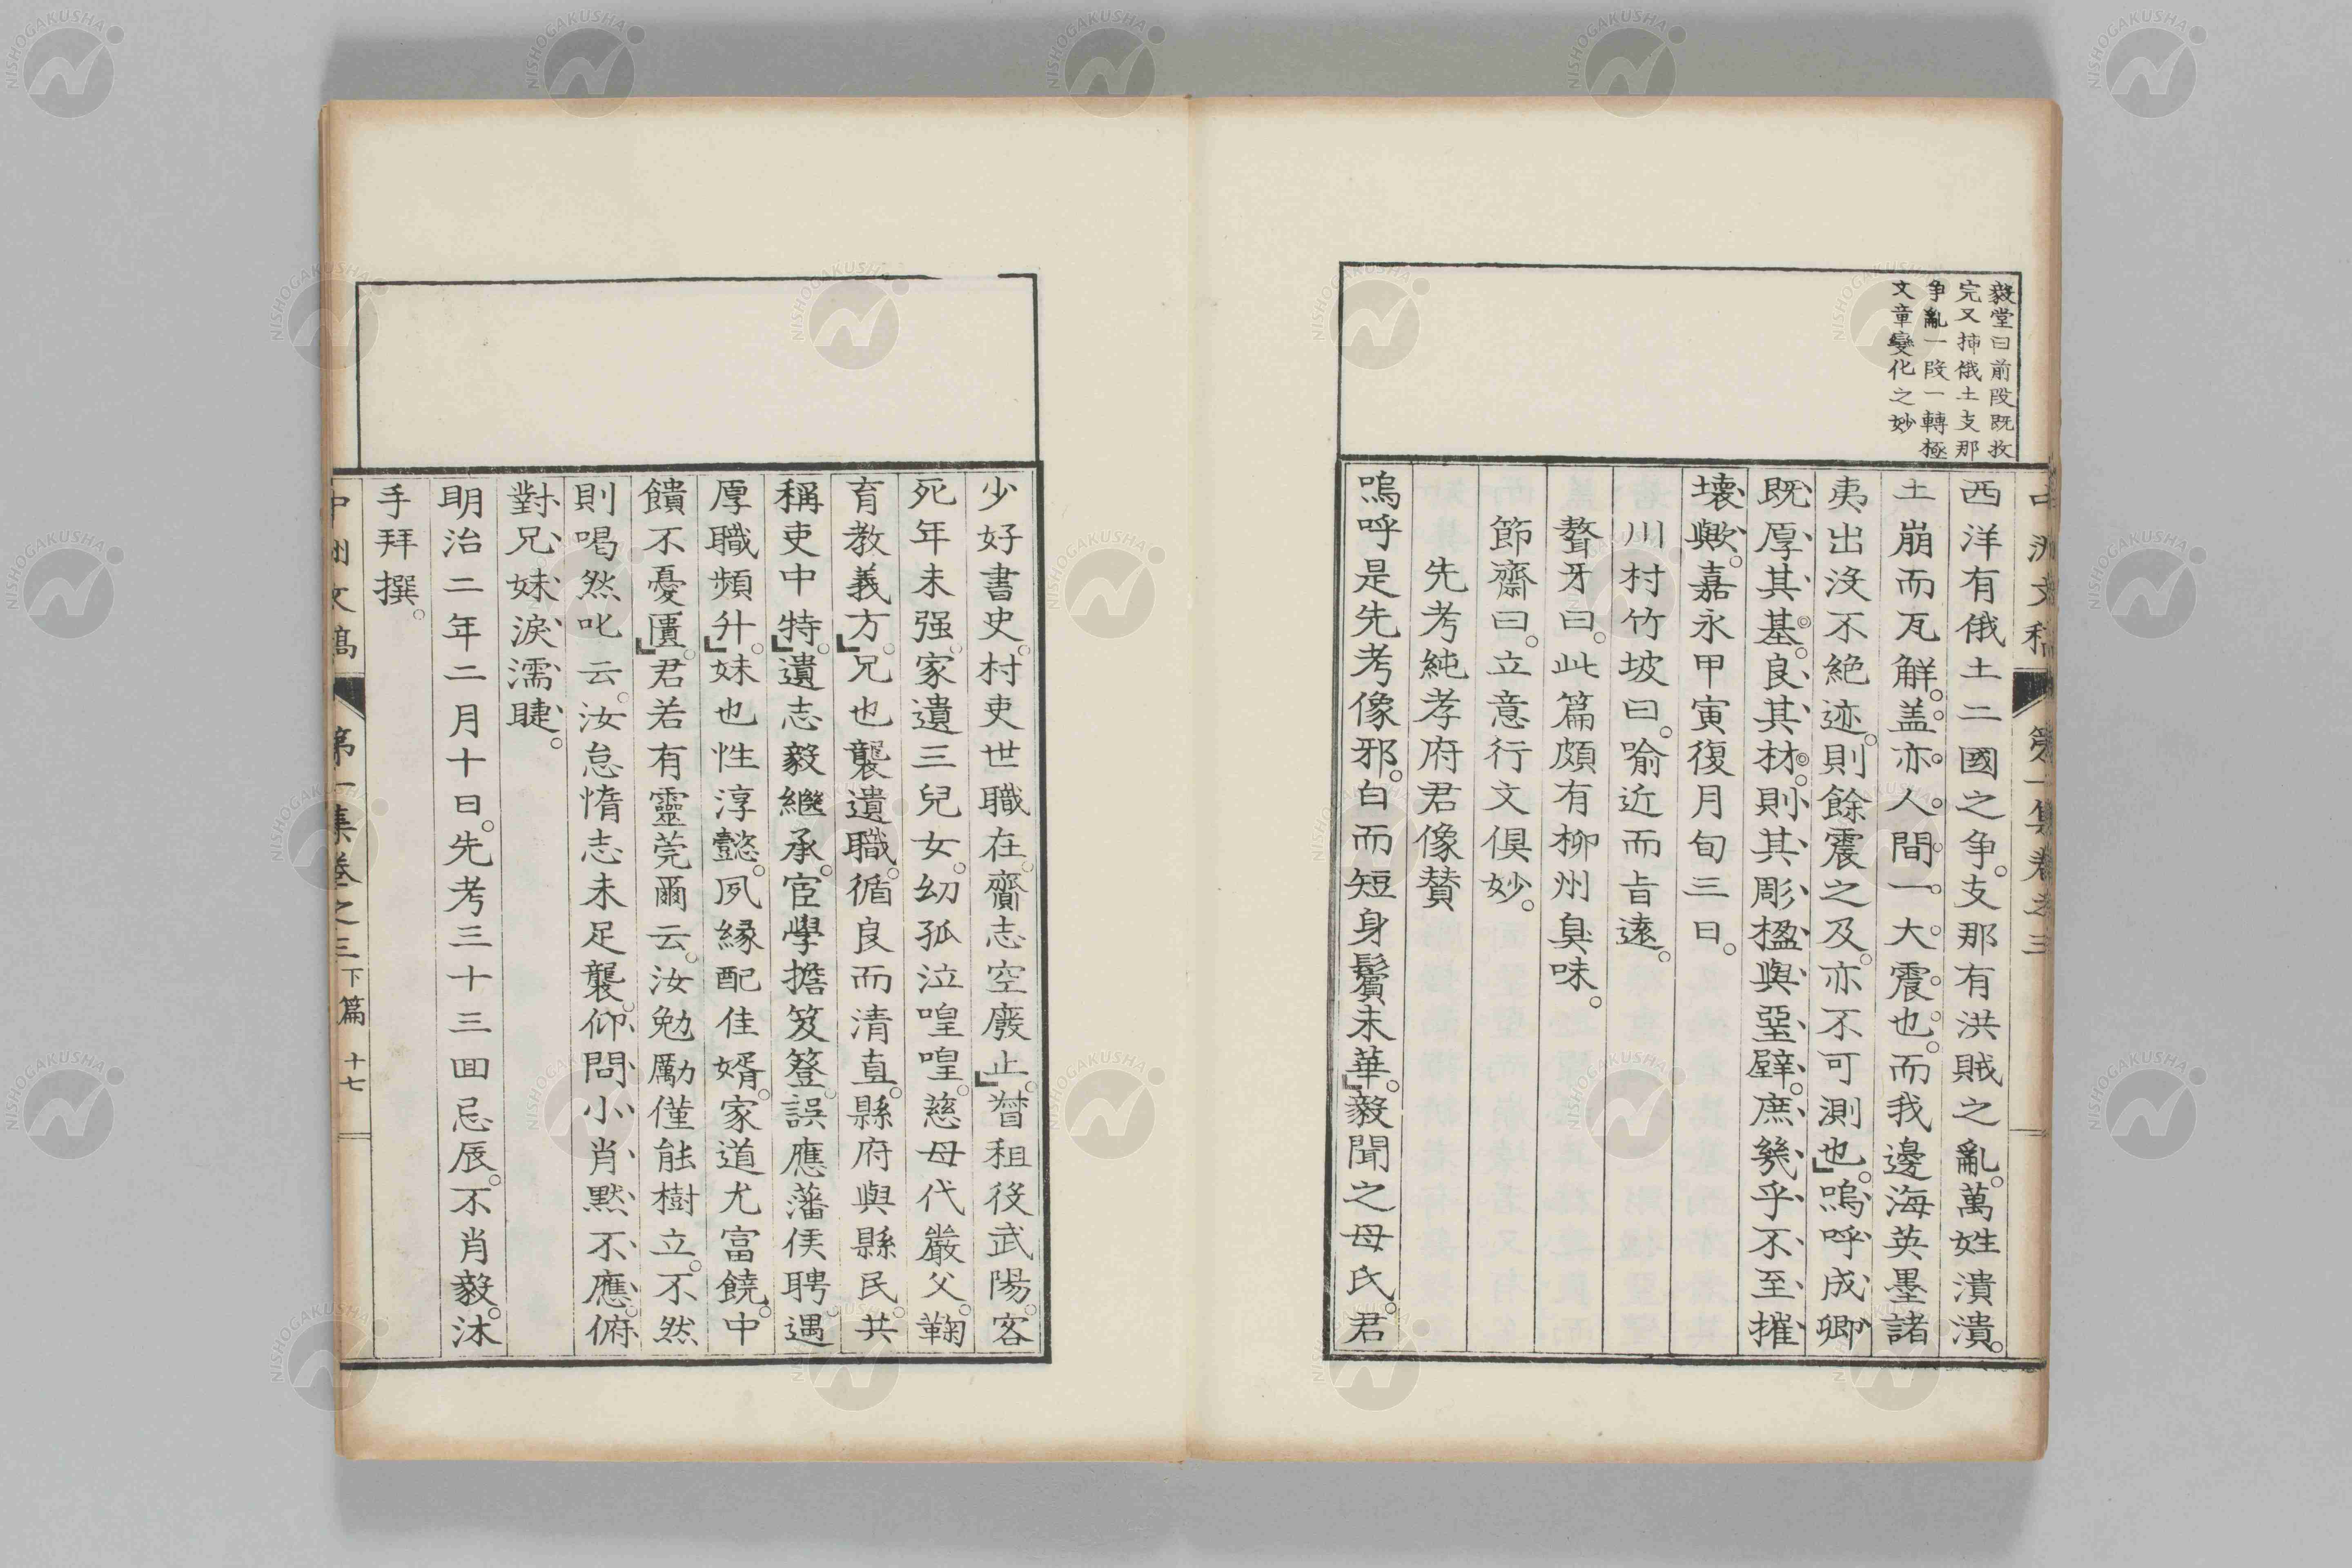 毅堂曰前段既收
完又挿俄土支那
争亂一段一轉極
文章變化之妙
西洋有俄土二國之争。支那有洪賊之亂。萬姓潰潰。
土崩而瓦解。盖亦人間一大震也。而我邊海英墨諸
夷出没不絶迹。則餘震之及。亦不可測也。」嗚呼成卿
既厚其基。良其材。則其彫楹與堊壁。庶幾乎不至摧
壊歟。嘉永甲寅復月旬三日。
川村竹坡曰。喻近而旨遠。
聱牙曰。此篇頗有柳州臭味。
節齋曰。立意行文俱妙。
先考純孝府君像贊
嗚呼是先考像邪。白而短身鬢未華。」毅聞之母氏。君
少好書史。村吏世職在。齎志空廢止。」督租役武陽。客
死年未强。家遺三兒女。幼孤泣喤喤。慈母代嚴父。鞠
育教義方。」兄也襲遺職。循良而清直。縣府與縣民。共
稱吏中特。」遺志毅繼承。宦學擔笈簦。誤應藩侯聘。遇
厚職頻升。」妹也性淳懿。夙緣配佳婿。家道尤富饒。中
饋不憂匱。」君若有靈莞爾云。汝勉勵僅能樹立。不然
則喝然叱云。汝怠惰志未足襲。仰問小肖默不應。俯
對兄妹淚濡睫。
明治二年二月十日。先考三十三回忌辰。不肖毅。沐
手拜撰。
中洲文稿 第一集卷之三 下篇 十七